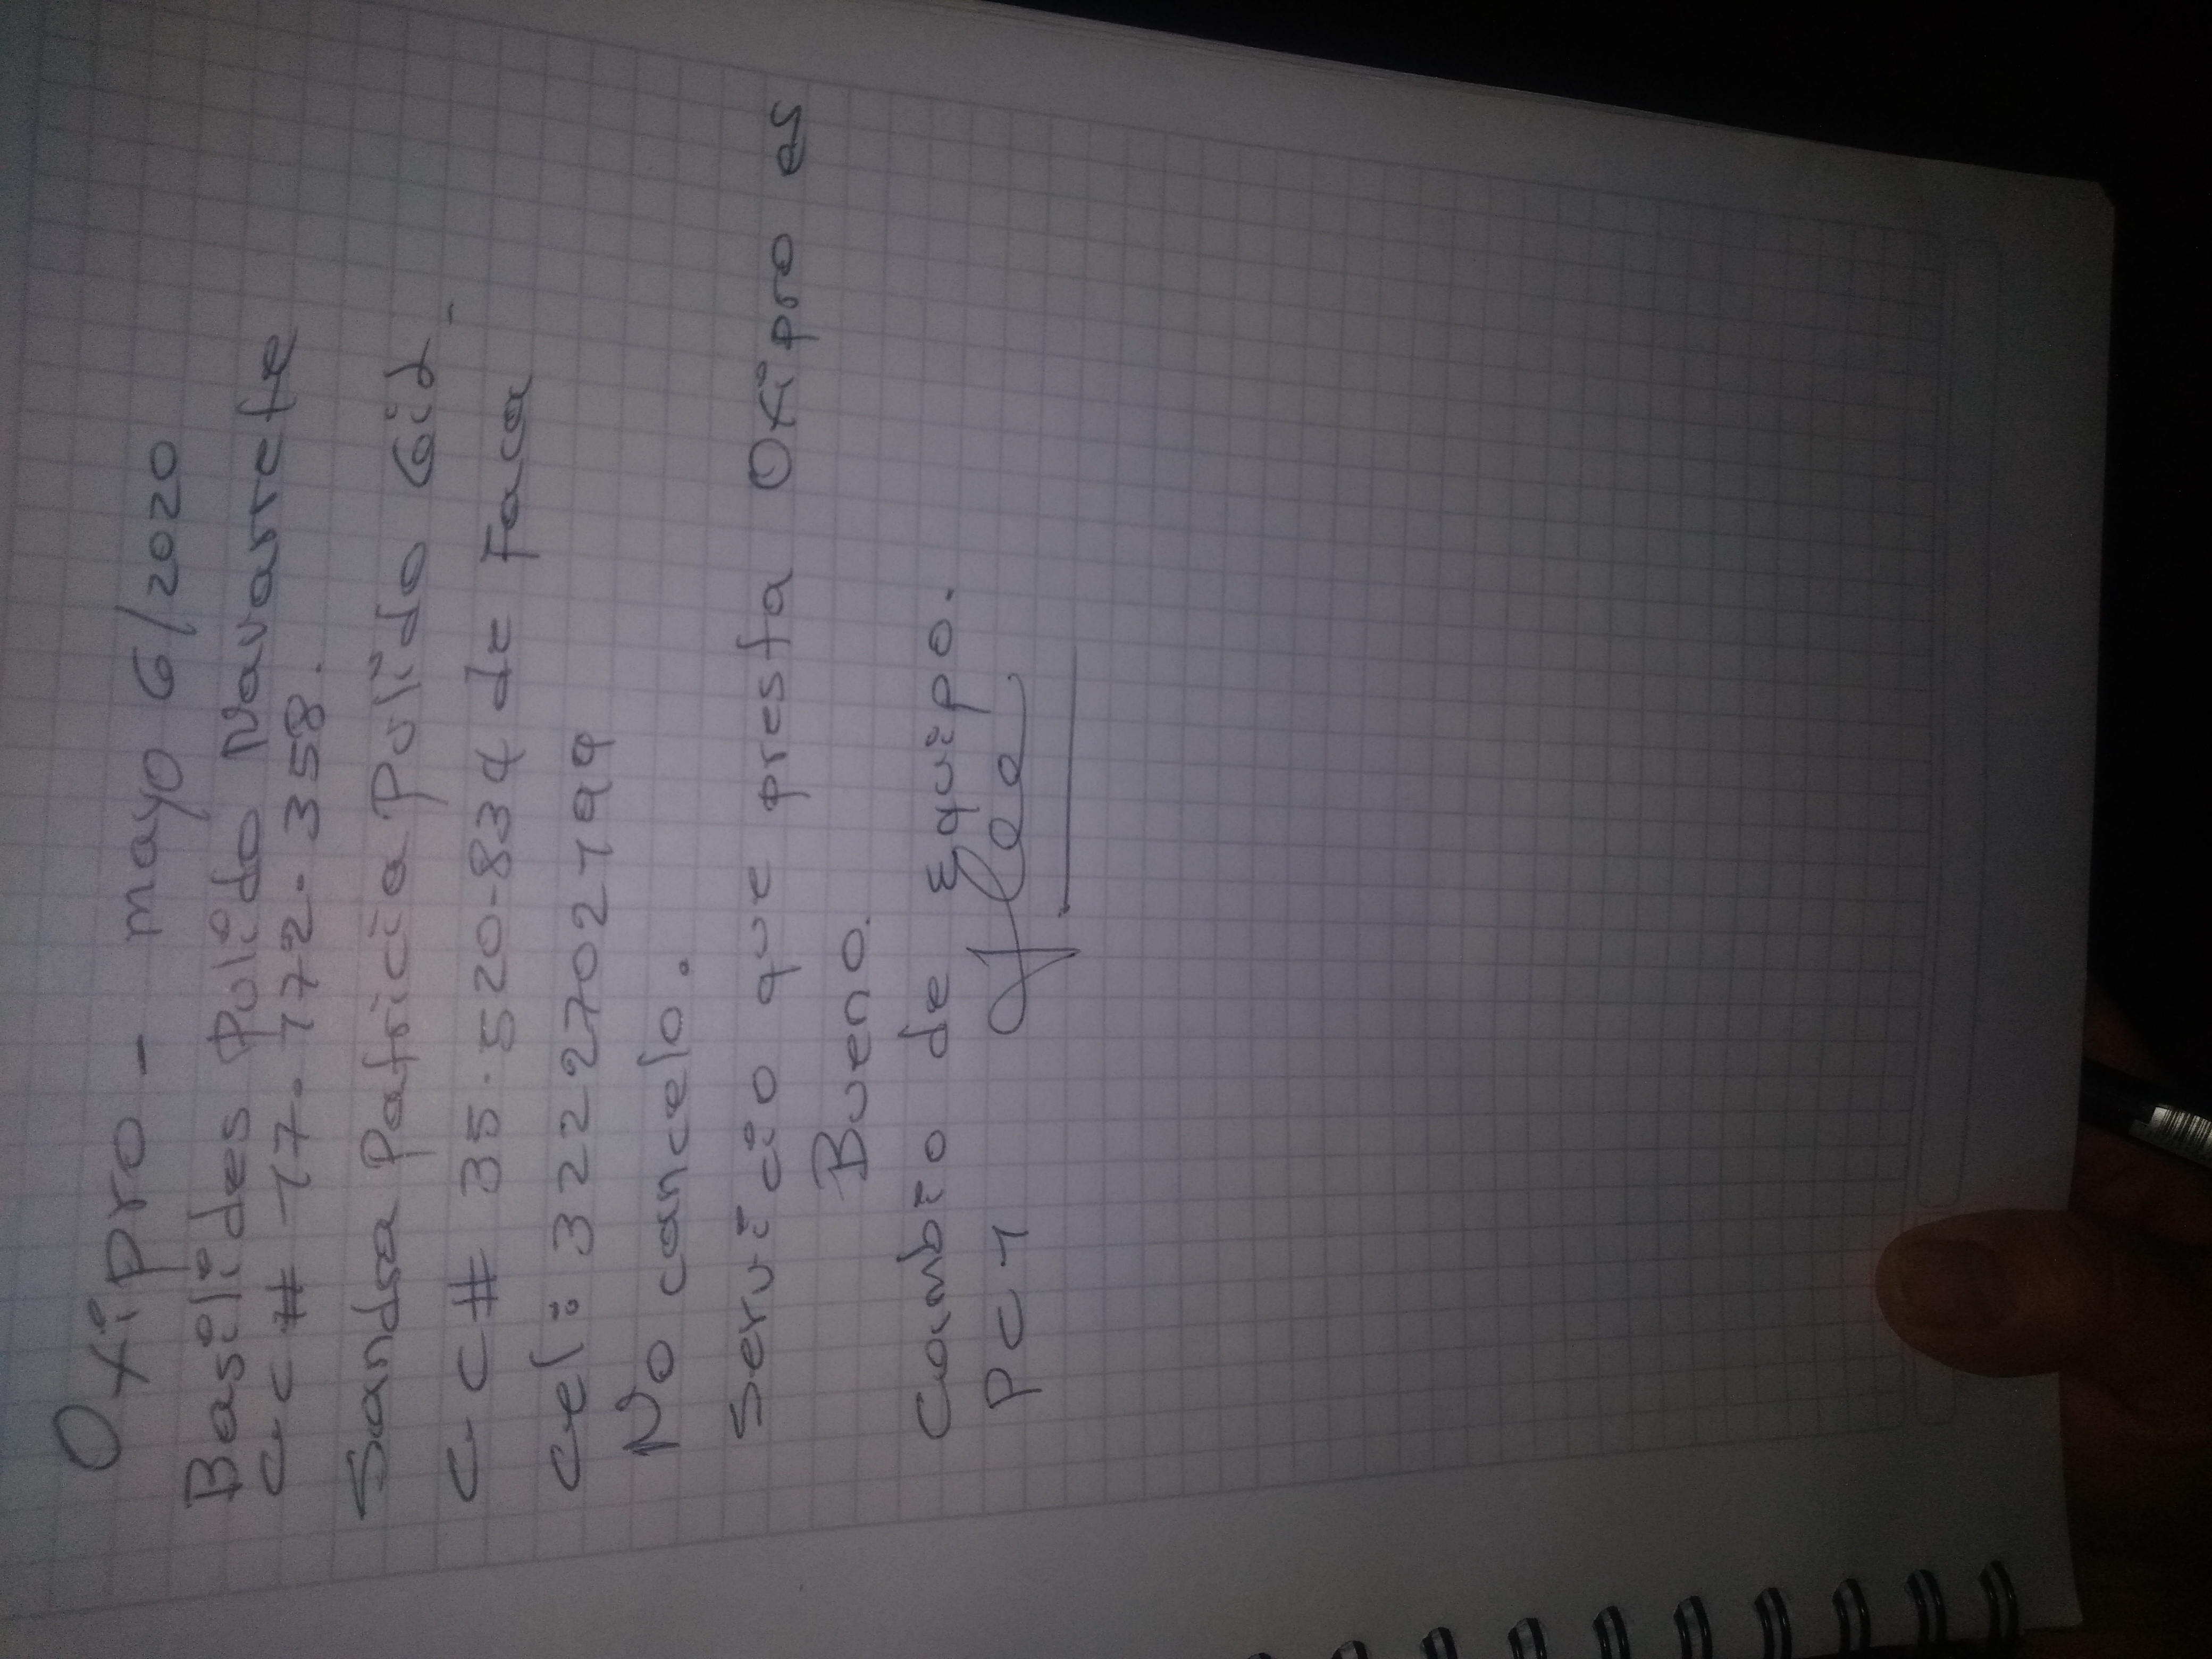 Oxipro - mayo 6/2020
Basilides Pulido Navarrete
cc # 17.172.358.
Sandra Patricia Pulido Gil.
cc # 35.520.834 de Faca
cel: 3222702199
No cancelo.
Servicio que presta Oxipro es
Bueno.
Cambio de Equipo.
PC 1